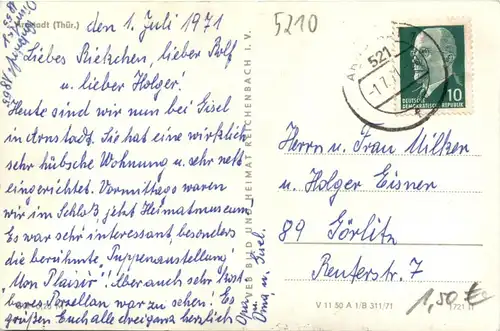 Arnstadt (Thür.)
den 1. Juli 1971
5210
Liebes Riekchen, lieber Rolf
u. lieber Holger!
Heute sind wir nun bei Gisel
in Arnstadt. Sie hat eine wirklich
sehr hübsche Wohnung u. sehr nett
eingerichtet. Vormittags waren
wir im Schloß, jetzt Heimatmuseum.
Es war sehr interessant, besonders
die berühmte „Puppenausstellung"
„Mon Plaisir"! Aber auch sehr kost-
bares Porzellan war zu sehen! Es
grüßen Euch alle drei ganz herzlich
Oma u. Gisel.
VEB BILD UND HEIMAT REICHENBACH I. V.
521
-1.7.71
10
DEUTSCHE
DEMOKRATISCHE REPUBLIK
Herrn u. Frau
u. Holger Eisner
89 Görlitz
Reuterstr. 7
V 11 50 A 1/B 311/71
1,50 €